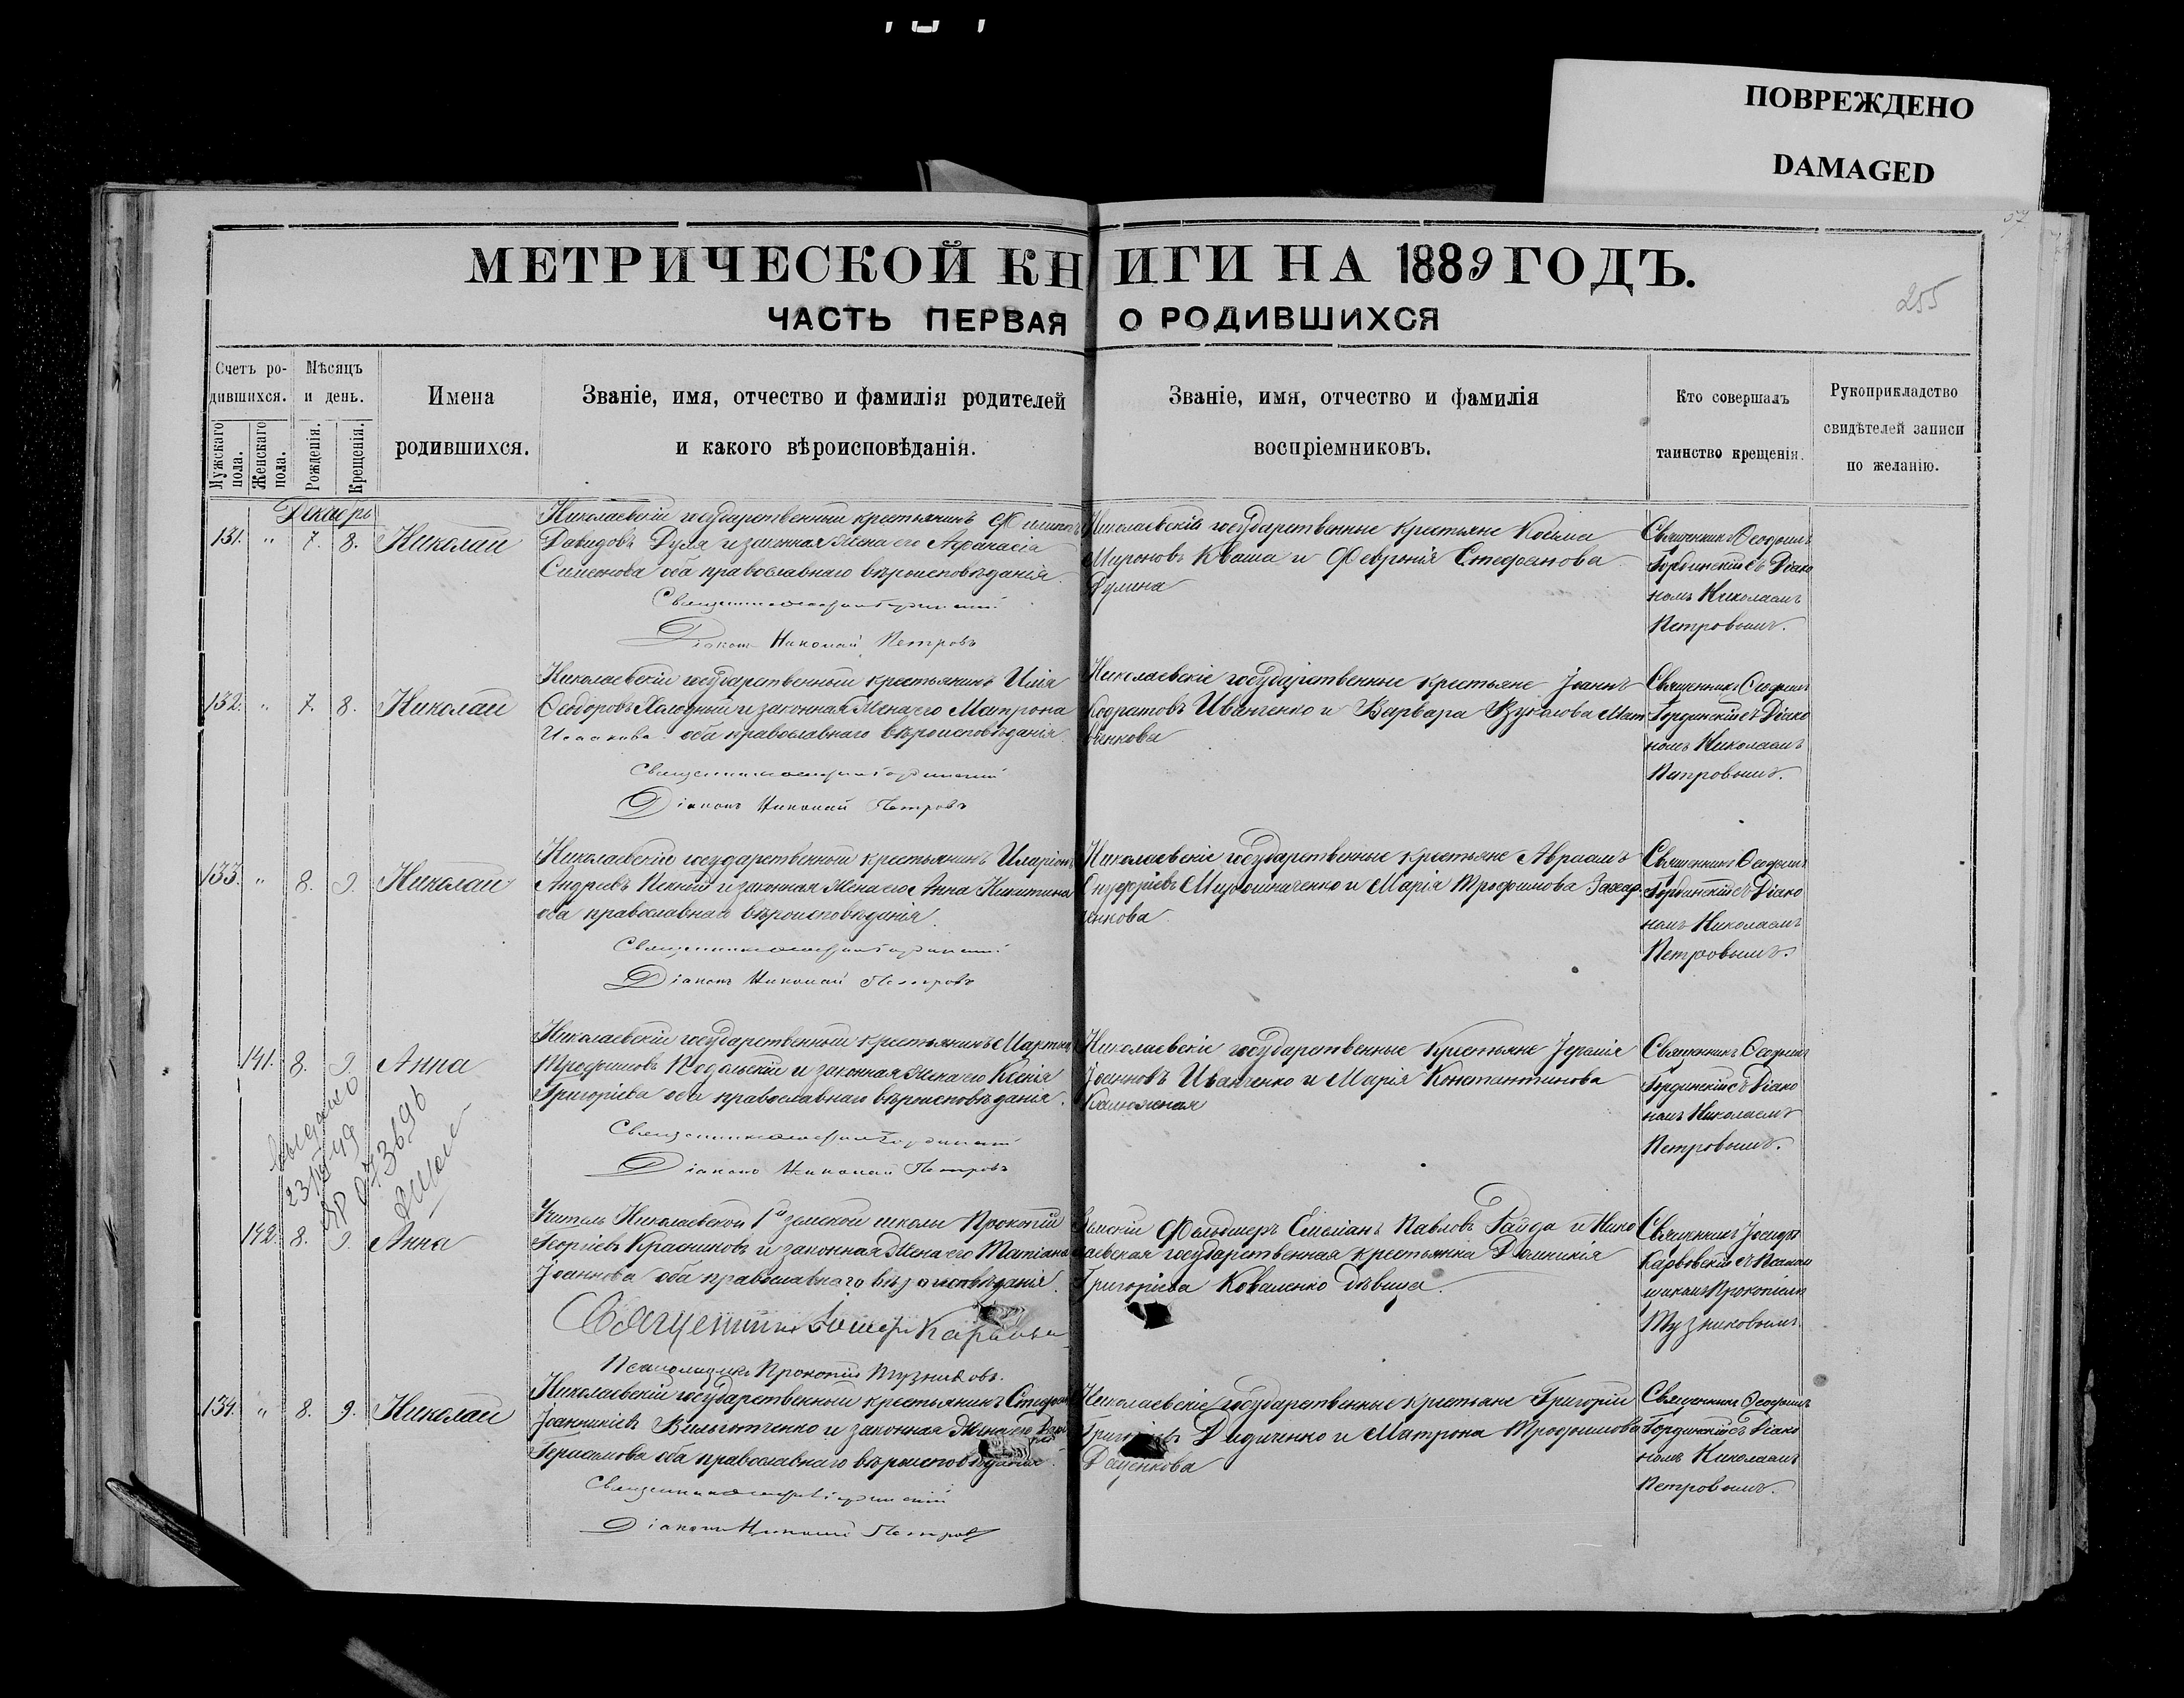 ПОВРЕЖДЕНО
DAMAGED
МЕТРИЧЕСКОЙ КНИГИ НА 1889 ГОДЪ.
255
ЧАСТЬ ПЕРВАЯ О РОДИВШИХСЯ
Счетъ ро-
дившихся.
Мужскаго
пола.
Женскаго
пола.
Мѣсяцъ
и день.
Рожденія.
Крещенія.
Имена
родившихся.
Званіе, имя, отчество и фамилія родителей
и какого вѣроисповѣданія.
Званіе, имя, отчество и фамилія
воспріемниковъ.
Кто совершалъ
таинство крещенія.
Рукоприкладство
свидѣтелей записи
по желанію.
Декабрь
131. " 7. 8. Николай
Николаевскій государственный крестьянинъ Филиппъ
Давидовъ Дуля и законная жена его Афанасія
Симеонова оба православнаго вѣроисповѣданія.
Священникъ
Діаконъ Николай Петровъ
Николаевскіе государственные крестьяне Косьма
Мироновъ Кваша и Февронія Стефанова
Дулина
Священникъ Ѳеофилъ
Гординскій съ Діако
номъ Николаемъ
Петровымъ.
132. " 7. 8. Николай
Николаевскій государственный крестьянинъ Илія
Ѳеодоровъ Холодный и законная жена его Матрона
Исаакова оба православнаго вѣроисповѣданія.
Священникъ
Діаконъ Николай Петровъ
Николаевскіе государственные крестьяне Іоаннъ
Кодратовъ Иванченко и Варвара Вуколова Мат
вѣенкова
Священникъ Ѳеофилъ
Гординскій съ Діако
номъ Николаемъ
Петровымъ.
133. " 8. 9. Николай
Николаевскій государственный крестьянинъ Иларіонъ
Андреевъ и законная жена его Анна Никитина
оба православнаго вѣроисповѣданія.
Священникъ
Діаконъ Николай Петровъ
Николаевскіе государственные крестьяне Авраамъ
Онуфріевъ Мирошниченко и Марія Трофимова Захар
ченкова
Священникъ Ѳеофилъ
Гординскій съ Діако
номъ Николаемъ
Петровымъ.
141. 8. 9. Анна
Николаевскій государственный крестьянинъ Мартинъ
Трофимовъ Подольскій и законная жена его Ксенія
Григоріева оба православнаго вѣроисповѣданія.
Священникъ
Діаконъ Николай Петровъ
Николаевскіе государственные крестьяне Іеремія
Іоанновъ Иванченко и Марія Константинова
Калюжная
Священникъ Ѳеофилъ
Гординскій съ Діако
номъ Николаемъ
Петровымъ.
выдано
073696
142. 8. 9. Анна
Учитель Николаевской 1й земской школы Прокопій
Георгіевъ Красниковъ и законная жена его Татіана
Іоаннова оба православнаго вѣроисповѣданія.
Священникъ Іосифъ
Псаломщикъ Прокопій Тузниковъ.
Земскій Фельдшеръ Емеліанъ Павловъ Гайда и Нико
лаевская государственная крестьянка Домникія
Григоріева Коваленко дѣвица.
Священникъ Іосифъ
Карвовскій съ Псалом
щикомъ Прокопіемъ
Тузниковымъ.
134. " 8. 9. Николай
Николаевскій государственный крестьянинъ Стефанъ
Іоанникіевъ и законная жена его
Герасимова оба православнаго вѣроисповѣданія.
Священникъ
Діаконъ Николай Петровъ
Николаевскіе государственные крестьяне Григорій
Григоріевъ Дидиченко и Матрона Трофимова
Даценкова
Священникъ Ѳеофилъ
Гординскій съ Діако
номъ Николаемъ
Петровымъ.